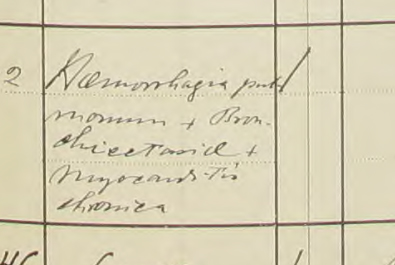 2 Hæmorrhagia pul
monum + Bron-
chiectasie +
Myocarditis
chronica